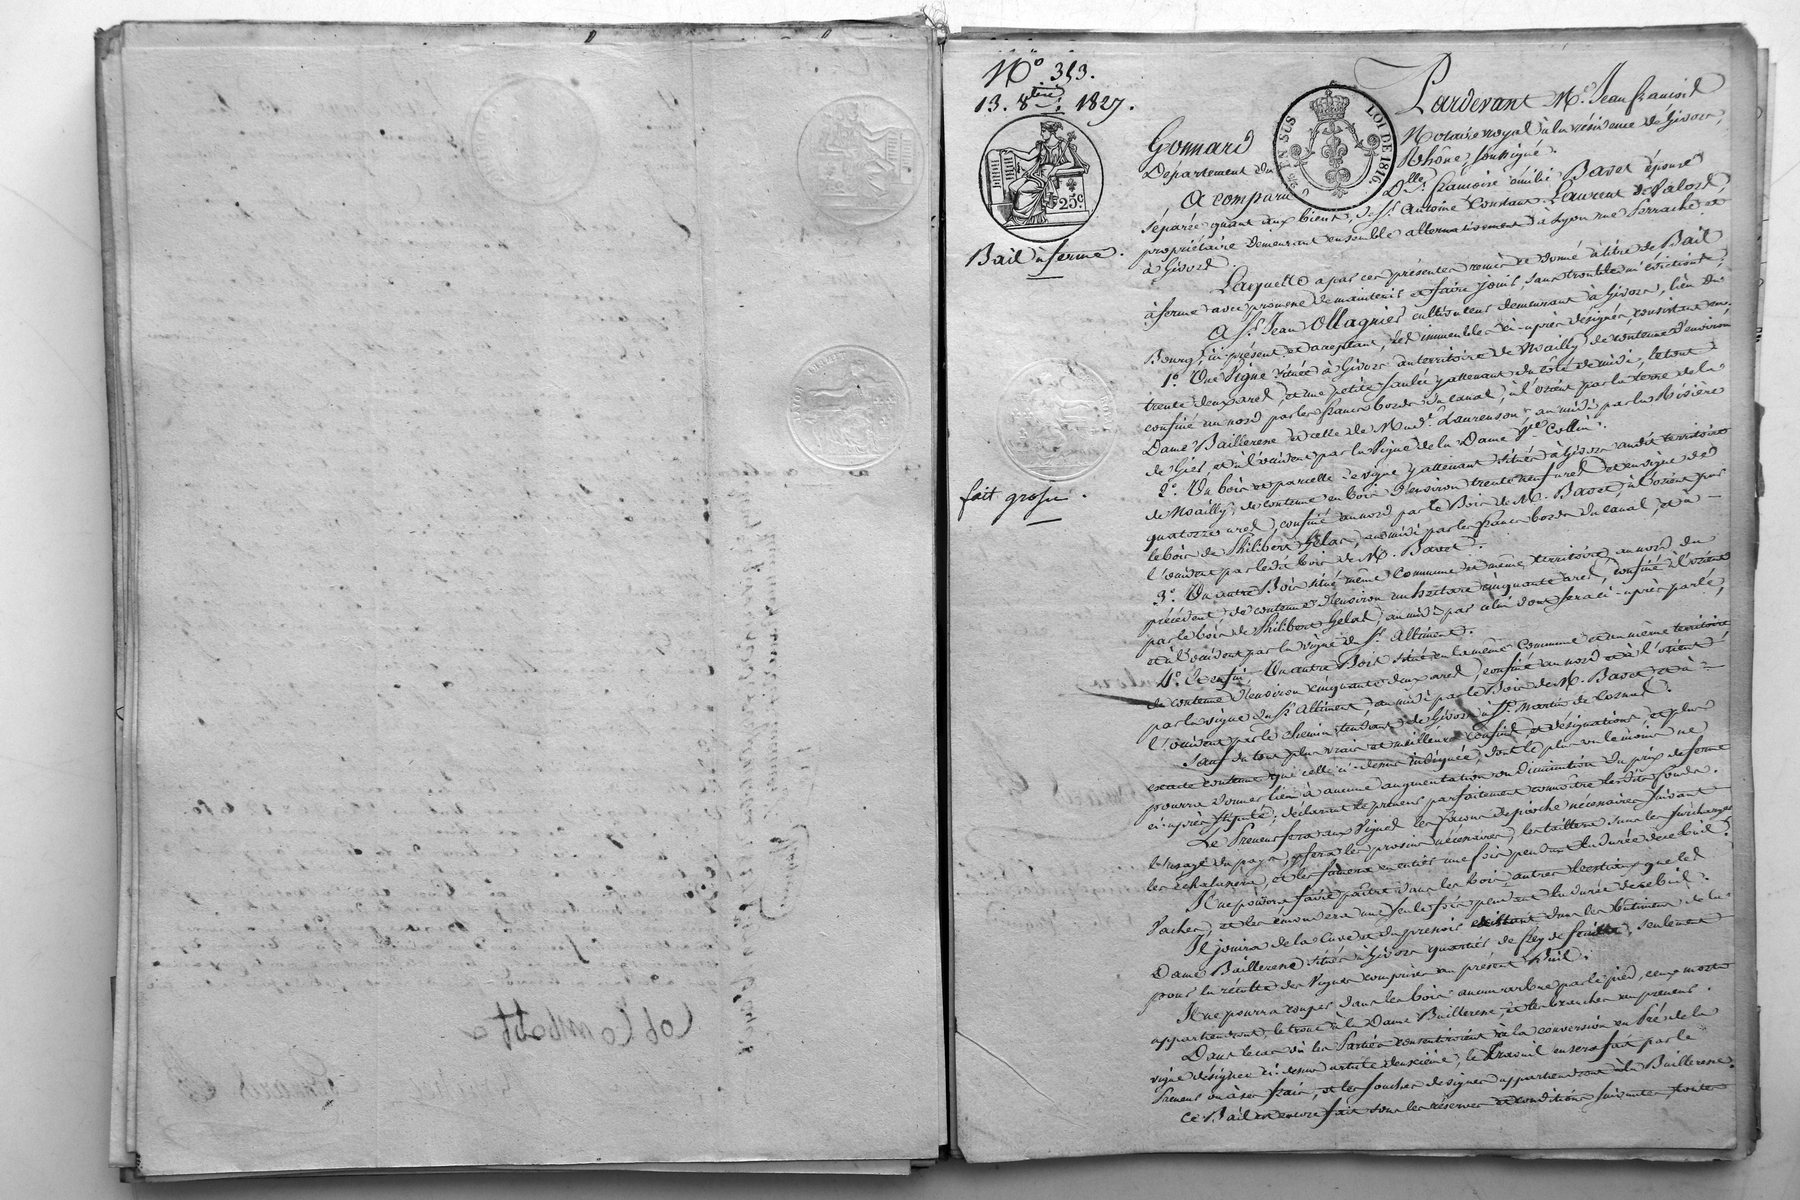 N.º 353.
13. 8bre 1827.
25c
EN SUS
LOI DE 1816.
Bail à ferme.
fait grosse.
Pardevant Me. Jean françois
Gonnard Notaire royal à la résidence de Givors,
Département du Rhône, soussigné.
A comparu Dlle. françoise émilie Bavet épouse
séparée quant aux biens, de Sr. Antoine Constant Laurent de Valors,
propriétaire demeurant ensemble alternativement à Lyon rue Perrache et
à Givors.
Laquelle a par ces présentes remis et donné à titre de Bail
à ferme avec promesse de maintenir et faire jouir, sans trouble ni éviction,
A Sr. Jean Ollagnier cultivateur demeurant à Givors, lieu du
Bourg, ici présent et acceptant, les immeubles ci-après désignés, consistant en:
1.º Une Vigne située à Givors au territoire de Moailly, de contenue d'environ
trente deux ares, et une petite saulée y attenant du côté de midi, le tout
confiné au nord par les francs bords du Canal, à l'orient par la terre de la
Dame Baillerene et celle de Made. Laurenson, au midi par la Rivière
de Gier, et à l'occident par la Vigne de la Dame Ve. Collin.
2.º Un bois et parcelle de vigne y attenant situés à Givors audit territoire
de Moailly, de contenue en bois d'environ trente neuf ares, et en vigne de
quatorze ares, confiné au nord par le Bois de M. Bavet, à l'orient par
le bois de Philibert Gelas, au midi par les francs bords du Canal, et à
l'occident par ledit bois de M. Bavet.
3.º Un autre Bois situé même Commune et même territoire, au nord du
précédent, de contenue d'environ un hectare cinquante ares, confiné à l'orient
par le bois de Philibert Gelas, au midi par celui dont sera ci-après parlé,
et à l'occident par la vigne de Sr. Altiment.
4.º Et enfin, Un autre Bois situé en la même Commune et au même territoire
de contenue d'environ cinquante deux ares, confiné au nord et à l'orient
par la vigne du Sr. Altiment, au midi par le Bois de M. Bavet et à
l'occident par le chemin tendant de Givors à St. Martin de Cornas.
Sauf du tout plus vrais et meilleurs confins, et désignations et plus
exacte contenue que celle ci-dessus indiquée, dont le plus ou le moins ne
pourra donner lieu à aucune augmentation ou diminution du prix de ferme
ci-après stipulé; déclarant le preneur parfaitement connaître lesdits fonds.
Le Preneur fera aux Vignes les façons de pioche nécessaires suivant
l'usage du pays, y fera les provins nécessaires, les taillera sans les surcharger,
les échalassera, et les fumera en entier une fois pendant la durée de ce bail.
Il ne pourra faire paître dans les bois autres bestiaux que les
Vaches, et les émondera une seule fois pendant la durée de ce bail.
Il jouira de la Cuve et du pressoir existant dans les bâtimens de la
Dame Baillerene situés à Givors quartier de frey de seulement
pour la récolte des Vignes comprises au présent Bail.
Il ne pourra couper dans les bois aucun arbre par le pied, ceux morts
appartiendront, le tronc à la Dame Baillerene, et les branches au preneur.
Dans le cas où les Parties consentiroient à la conversion en Pré de la
vigne désignée ci-dessus article deuxième, le travail en sera fait par le
Preneur ou à ses frais, et les souches de vigne appartiendront à la De. Baillerene.
Ce Bail est encore fait sous les réserves et conditions suivantes, toutes